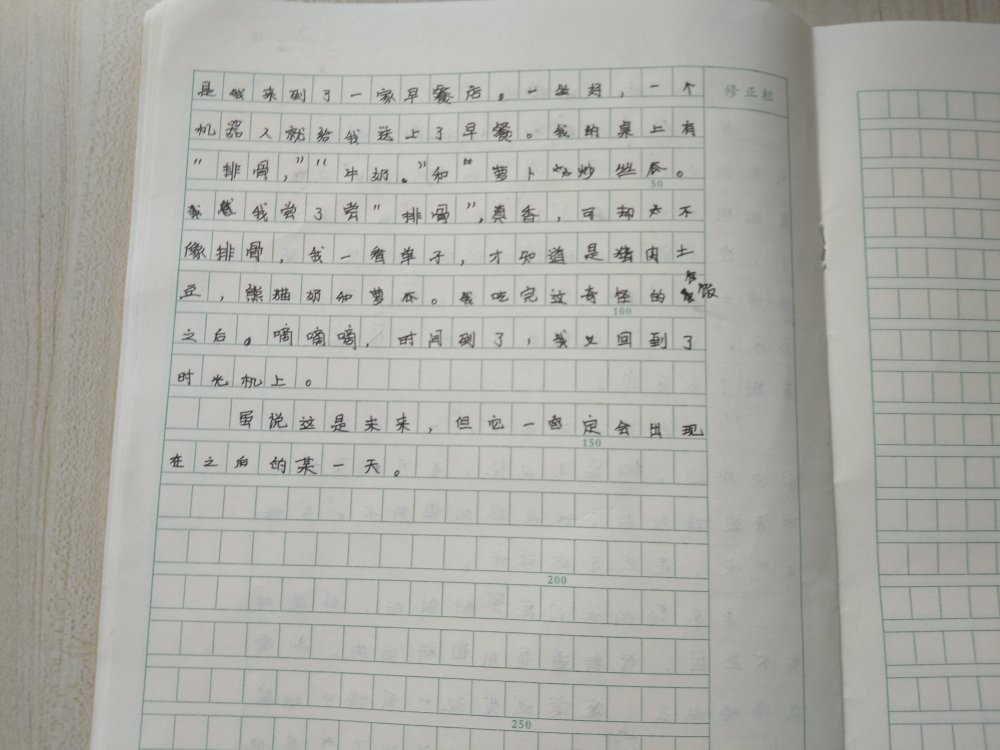 是我来到了一家早餐店。一坐好，一个
修正栏
机器人就给我送上了早餐。我的桌上有
“排骨，”“牛奶。”和“萝卜炒丝瓜。
50
我尝了尝“排骨”，真香，可却太不
像排骨，我一看单子，才知道是猪肉土
豆，熊猫奶和萝瓜。我吃完这奇怪的饭
100
之后。嘀嘀嘀，时间到了，我又回到了
时光机上。
虽说这是未来，但它一定会出现
150
在之后的某一天。
200
250